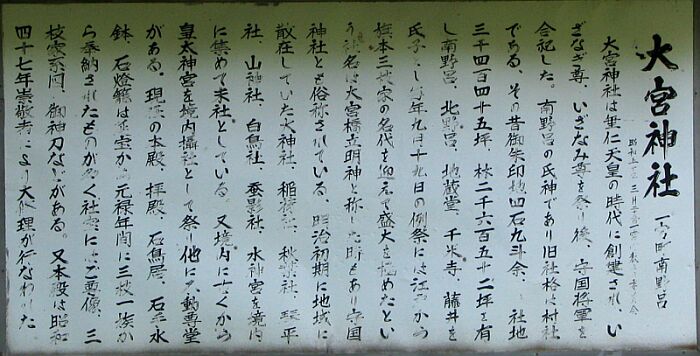 大宮神社 一宮町南野呂
大宮神社は垂仁天皇の時代に創建され、い
ざなぎ尊、いざなみ尊を祭り後、守国将軍を
合祀した。南野呂の氏神であり旧社格は村社
である。その昔御朱印地四石九斗余、社地
三千四百四十五坪 林二千六百五十二坪を有
し南野呂、北野呂、地蔵堂、千米寺、藤井を
氏子とし毎年九月十九日の例祭には江戸から
旗本三枝家の名代を迎えて盛大を極めたとい
う社名は大宮橋立明神と称した時もあり守国
神社とも俗称されている。明治初期に地域に
散在していた大神社、稲荷社、秋葉社、琴平
社、山神社、白鳥社、蚕影社、水神宮を境内
に集めて末社としている。又境内に古くから
皇太神宮を境内摂社として祭り他に不動尊堂
がある。現在の本殿、拝殿、石鳥居、石手水
鉢、石燈籠は から元禄年間に三枝一族か
ら奉納されたものが多く社宝にはご尊像、三
枝家系図、御神刀などがある。又本殿は昭和
四十七年崇敬者により大修理が行なわれた